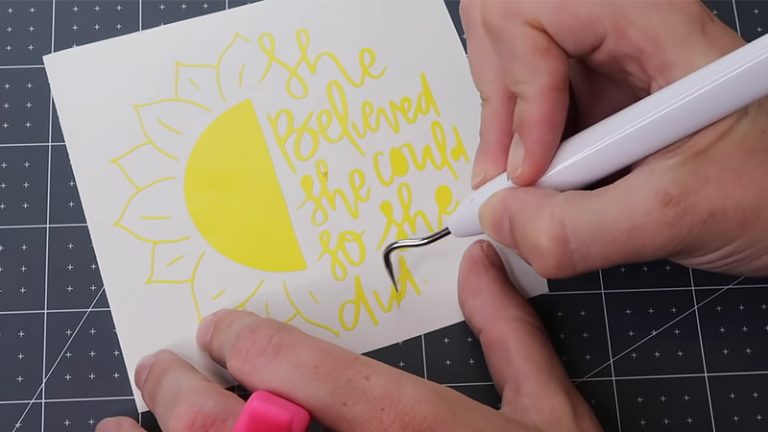 She
Believed
she could
so she
did.